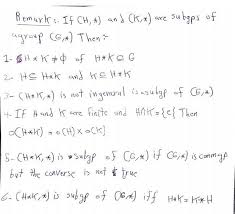 Remark:- If (H,*) and (K,*) are subgps of
a group (G,*) Then:-
1- H*K≠φ of H*K⊆G
2- H⊆H*K and K⊆H*K
3- (H*K,*) is not ingeneral is a subgp of (G,*)
4- IF H and K are finite and H∩K={e} Then
o(H*K) = o(H) x o(K)
5- (H*K,*) is subgp of (G,*) if (G,*) is commgp
but the converse is not true
6- (H*K,*) is subgp of (G,*) iff H*K=K*H